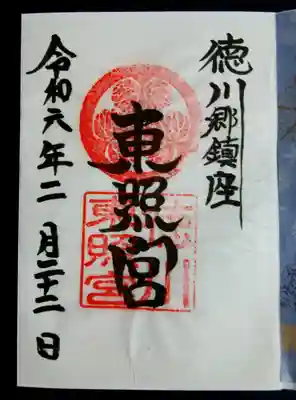 徳川郷鎮座
東照宮
令和六年二月二十二日